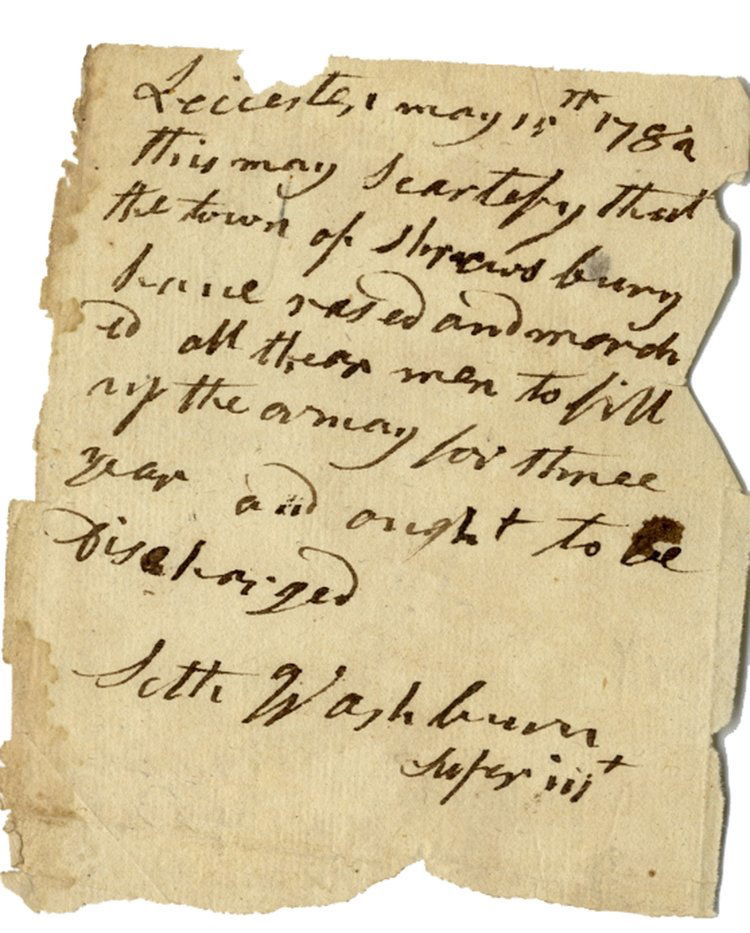 Leicester may 15th 1782
this may Scartefy that
the town of Shrewsbury
have rased and march
ed all thear men to fill
up the armay for three
year and ought to be
Discharged
Seth Washburn